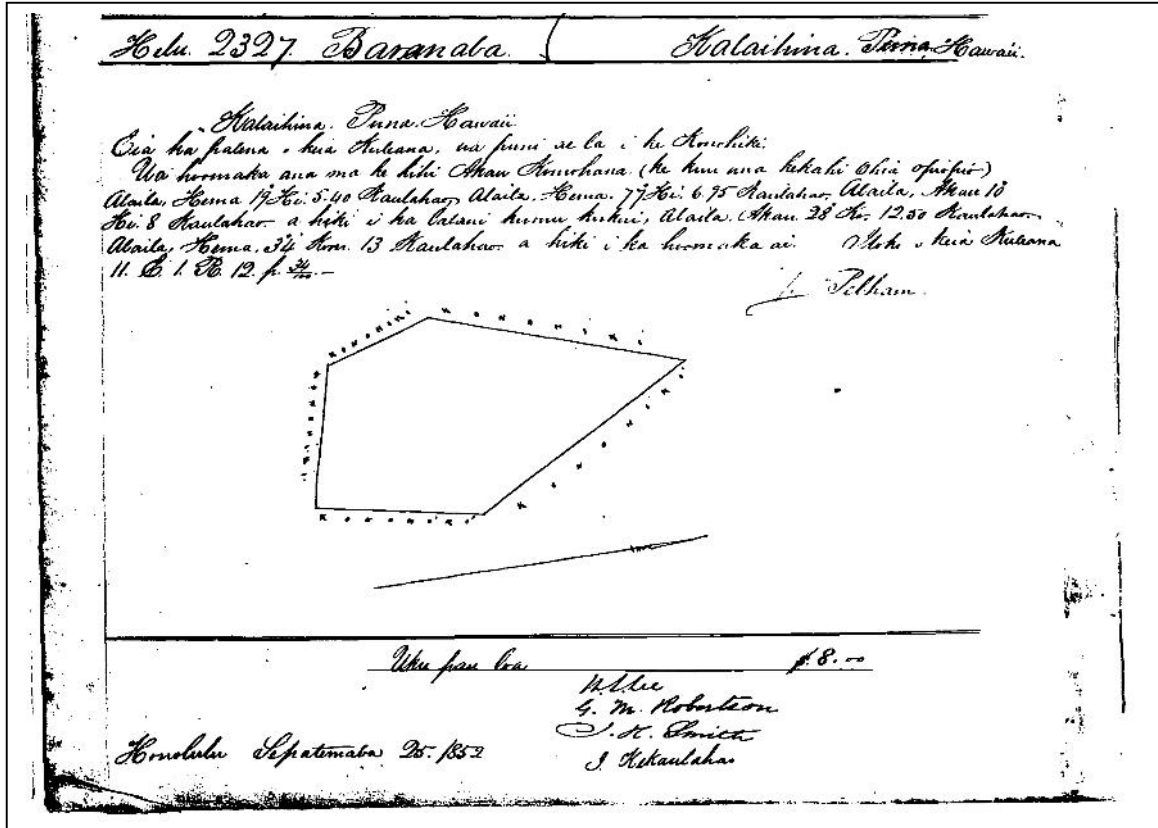 Helu. 2327. Baranaba. Kalaihina. Puna, Hawaii.
Kalaihina. Puna. Hawaii.
Eia ka palena o keia Kuleana, ua puni ae la i ke Konohiki.
Ua hoomaka ana ma ke kihi Akau Komohana (ke kumu ana kekahi Ohia opiopio)
Alaila, Hema 19° Hi. 5.40 Kaulahao, Alaila, Hema. 77° Hi. 6.95 Kaulahao, Alaila, Akau 10°
Hi. 8 Kaulahao a hiki i ka lalani kumu kukui, Alaila, Akau. 28° Ko. 12.50 Kaulahao
Alaila, Hema. 34° Kom. 13 Kaulahao a hiki i ka hoomaka ai. Iloko o keia Kuleana
11. E. 1. R. 12. p. 34/100. -
J. Pelham.
Konohiki
Konohiki
Konohiki
Konohiki
Konohiki
Uku pau loa $8.00
W. L. Lee
G. M. Robertson
J. H. Smith
J. Kekaulahao
Honolulu Sepatemaba 25. 1852